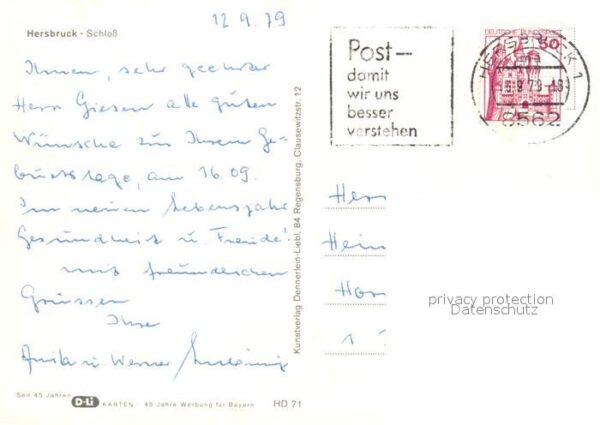 12.9.79
Hersbruck - Schloß
Ihnen, sehr geehrter
Herr Giesen alle guten
Wünsche zu Ihrem Ge-
burtstage, am 16.09.
Im neuen Lebensjahr
Gesundheit u. Freude!
mit freundlichen
Grüssen
Ihre
Anita u. Werner
Seit 45 Jahren
D-Li KARTEN 45 Jahre Werbung für Bayern HD 71
Kunstverlag Dennerlein-Liebl, 84 Regensburg, Clausewitzstr. 12
Post—
damit
wir uns
besser
verstehen
DEUTSCHE BUNDESPOST
50
HERSBRUCK 1
8562
Herr
Hein
Hor
1
privacy protection
Datenschutz